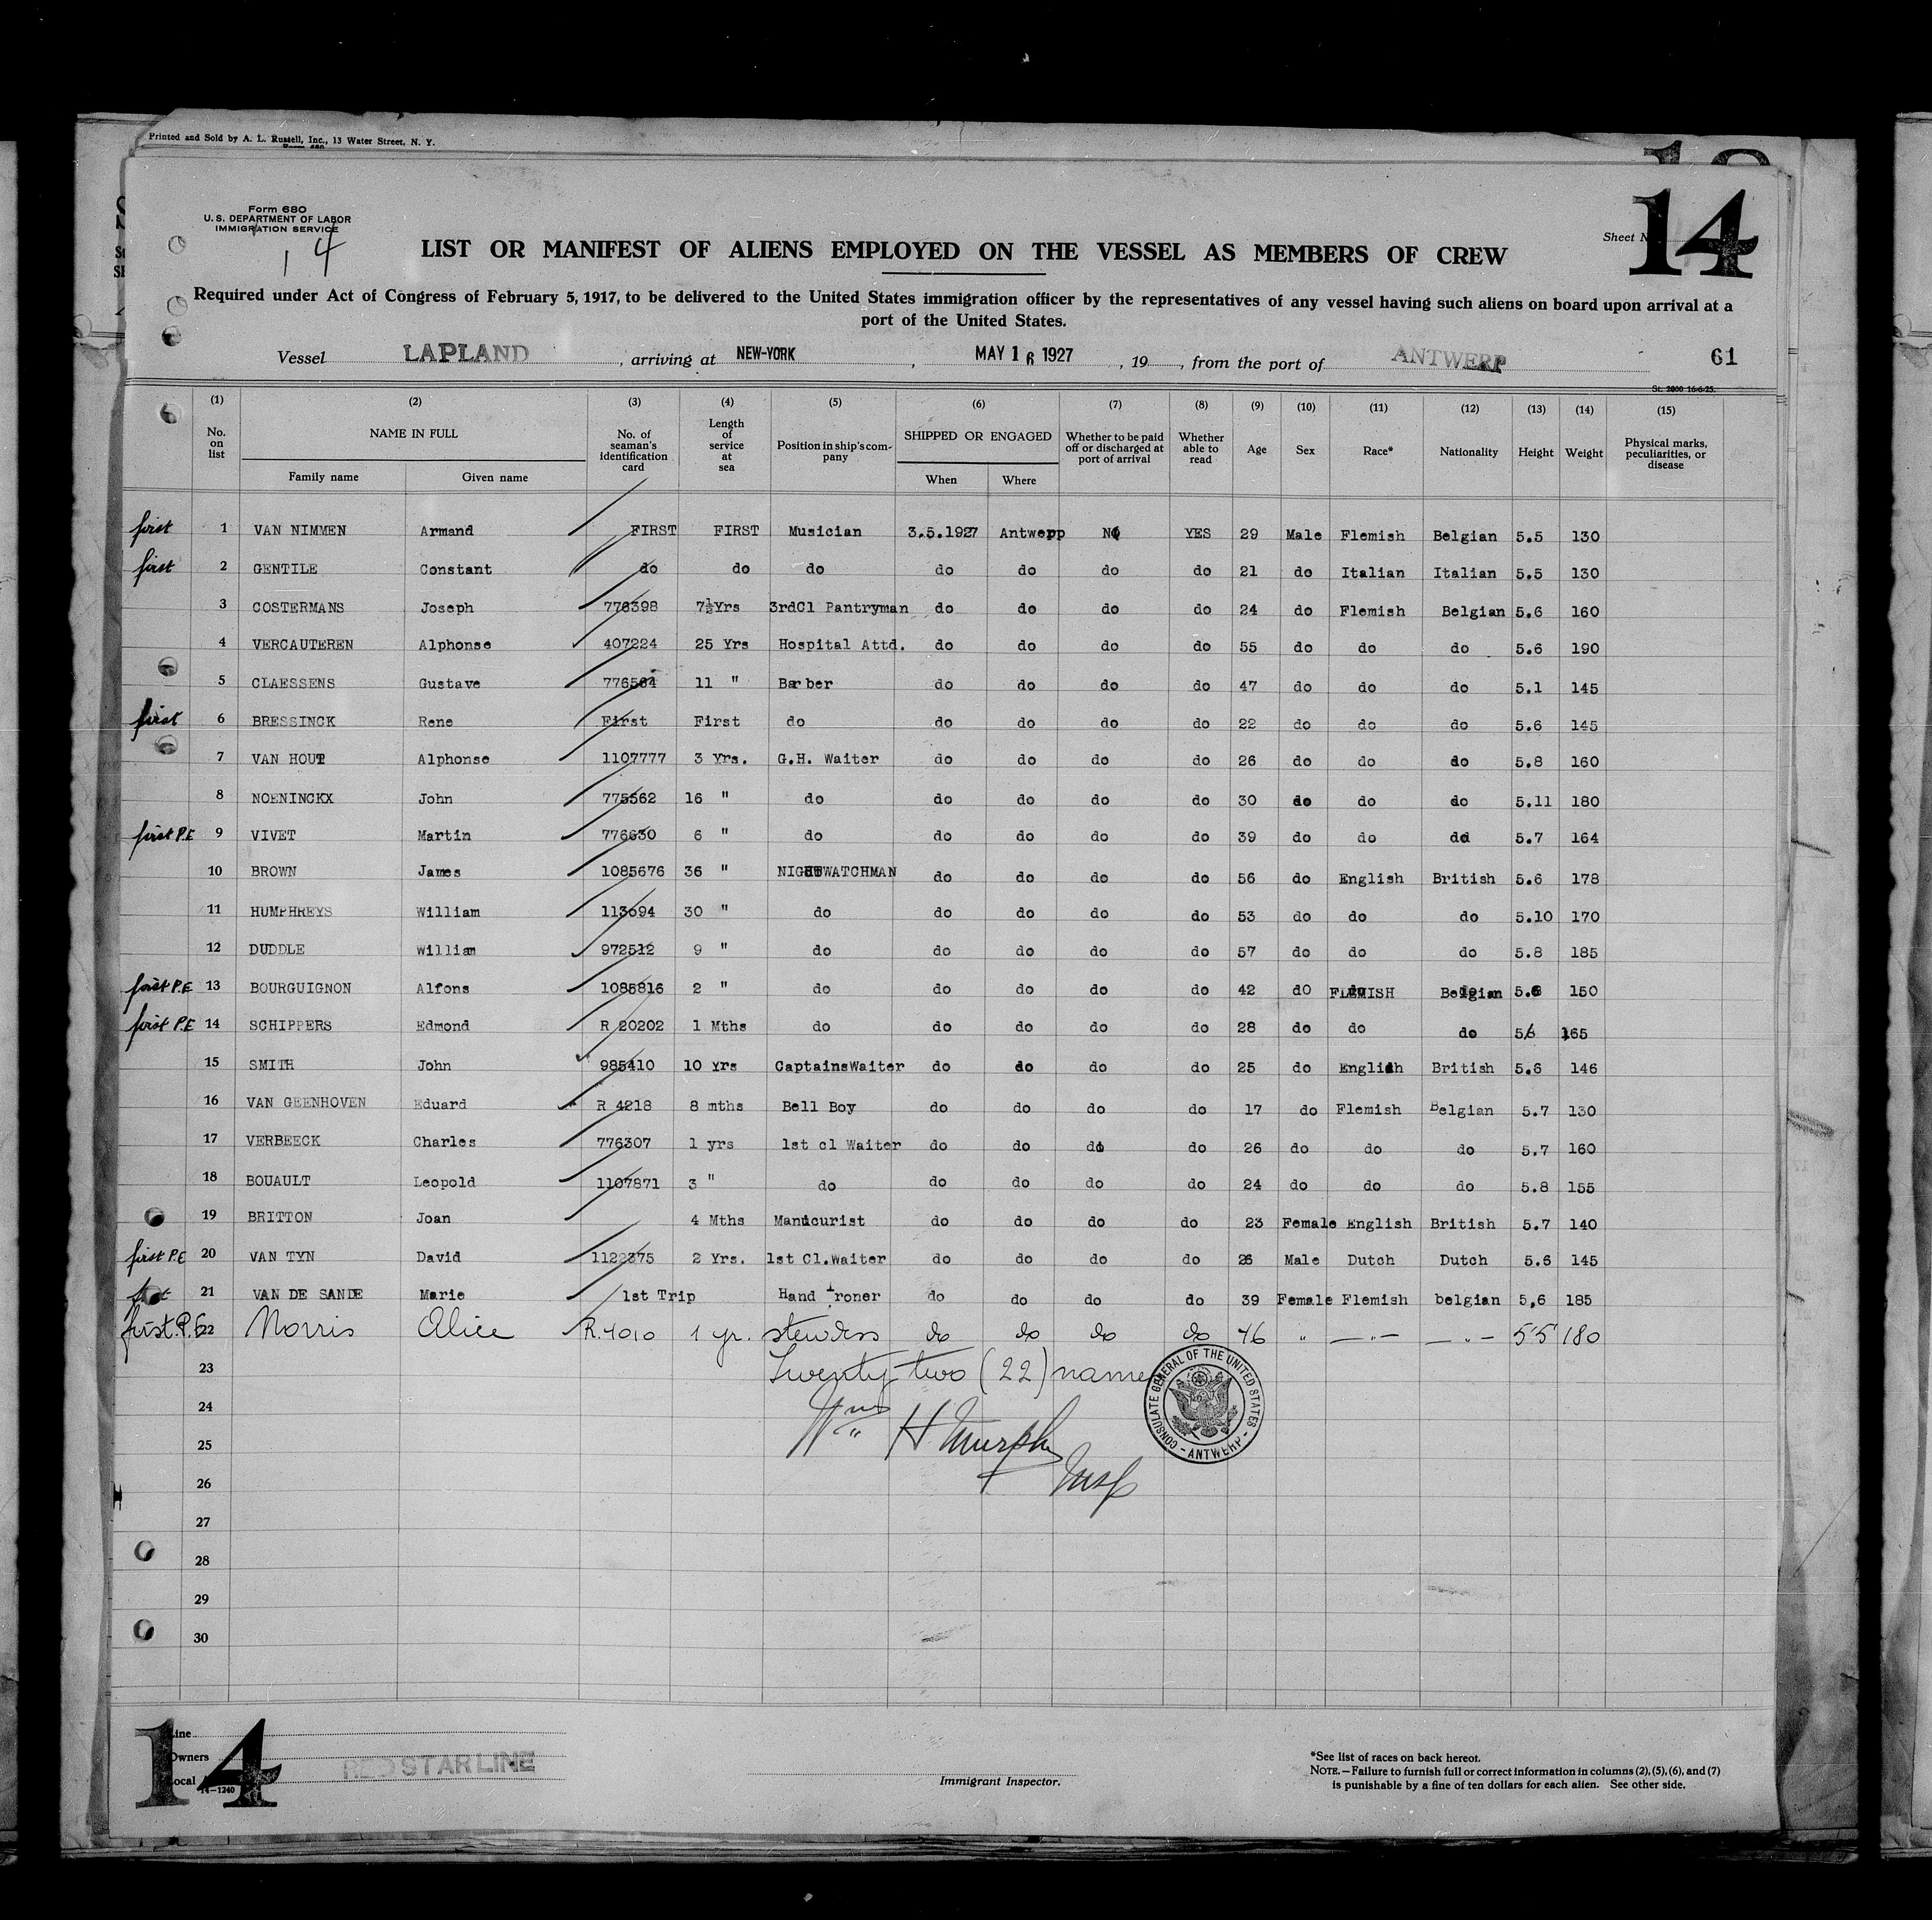 Printed and Sold by A. L. Russell, Inc., 13 Water Street, N. Y.
Form 680
U. S. DEPARTMENT OF LABOR
IMMIGRATION SERVICE
14
Sheet N 14
LIST OR MANIFEST OF ALIENS EMPLOYED ON THE VESSEL AS MEMBERS OF CREW
Required under Act of Congress of February 5, 1917, to be delivered to the United States immigration officer by the representatives of any vessel having such aliens on board upon arrival at a
port of the United States.
Vessel LAPLAND, arriving at NEW-YORK, MAY 16 1927, 19, from the port of ANTWERP 61
St. 2000 16-6-25.
(1) (2) (3) (4) (5) (6) (7) (8) (9) (10) (11) (12) (13) (14) (15)
No. on list NAME IN FULL Family name Given name No. of seaman's identification card Length of service at sea Position in ship's company SHIPPED OR ENGAGED When Where Whether to be paid off or discharged at port of arrival Whether able to read Age Sex Race* Nationality Height Weight Physical marks, peculiarities, or disease
first 1 VAN NIMMEN Armand FIRST FIRST Musician 3.5.1927 Antwerp NO YES 29 Male Flemish Belgian 5.5 130
first 2 GENTILE Constant do do do do do do do 21 do Italian Italian 5.5 130
3 COSTERMANS Joseph 776398 7½Yrs 3rdCl Pantryman do do do do 24 do Flemish Belgian 5.6 160
4 VERCAUTEREN Alphonse 407224 25 Yrs Hospital Attd. do do do do 55 do do do 5.6 190
5 CLAESSENS Gustave 776564 11 " Barber do do do do 47 do do do 5.1 145
first 6 BRESSINCK Rene First First do do do do do 22 do do do 5.6 145
7 VAN HOUT Alphonse 1107777 3 Yrs. G.H. Waiter do do do do 26 do do do 5.8 160
8 NOENINCKX John 775562 16 " do do do do do 30 do do do 5.11 180
first P.E 9 VIVET Martin 776630 6 " do do do do do 39 do do do 5.7 164
10 BROWN James 1085676 36 " NIGHTWATCHMAN do do do do 56 do English British 5.6 178
11 HUMPHREYS William 113694 30 " do do do do do 53 do do do 5.10 170
12 DUDDLE William 972512 9 " do do do do do 57 do do do 5.8 185
first P.E 13 BOURGUIGNON Alfons 1085816 2 " do do do do do 42 do FLEMISH Belgian 5.6 150
first P.E 14 SCHIPPERS Edmond R 20202 1 Mths do do do do do 28 do do do 56 165
15 SMITH John 985410 10 Yrs CaptainsWaiter do do do do 25 do English British 5.6 146
16 VAN GEENHOVEN Eduard R 4218 8 mths Bell Boy do do do do 17 do Flemish Belgian 5.7 130
17 VERBEECK Charles 776307 1 yrs 1st cl Waiter do do do do 26 do do do 5.7 160
18 BOUAULT Leopold 1107871 3 " do do do do do 24 do do do 5.8 155
19 BRITTON Joan 4 Mths Manicurist do do do do 23 Female English British 5.7 140
first P.E 20 VAN TYN David 1122375 2 Yrs. 1st Cl.Waiter do do do do 26 Male Dutch Dutch 5.6 145
first 21 VAN DE SANDE Marie 1st Trip Hand Ironer do do do do 39 Female Flemish belgian 5,6 185
first P.E 22 Norris Alice R.4010 1 yr. stewdess do do do do 46 " —"— —"— 55 180
23 Twenty two (22) names
24
25 Wm H Murphy
26 Insp
27
28
29
30
CONSULATE GENERAL OF THE UNITED STATES - ANTWERP -
14
Line
Owners RED STAR LINE
Local
14—1240
Immigrant Inspector.
*See list of races on back hereof.
NOTE.—Failure to furnish full or correct information in columns (2), (5), (6), and (7)
is punishable by a fine of ten dollars for each alien. See other side.